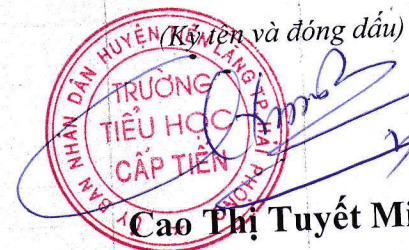 (Ký tên và đóng dấu)
BAN NHÂN DÂN HUYỆN TIÊN LÃNG TP HẢI PHÒNG
TRƯỜNG
TIỂU HỌC
CẤP TIẾN
Cao Thị Tuyết Mi